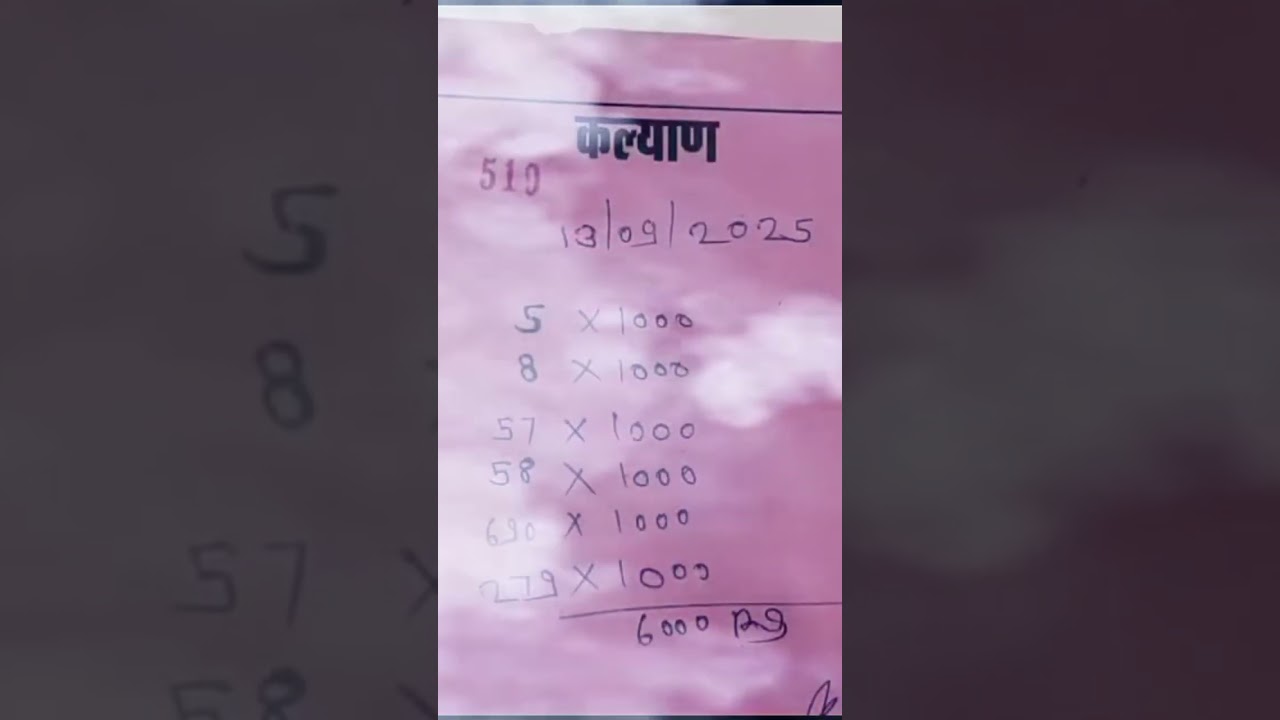 कल्याण
510
13/09/2025
5 X 1000
8 X 1000
57 X 1000
58 X 1000
690 X 1000
279 X 1000
6000